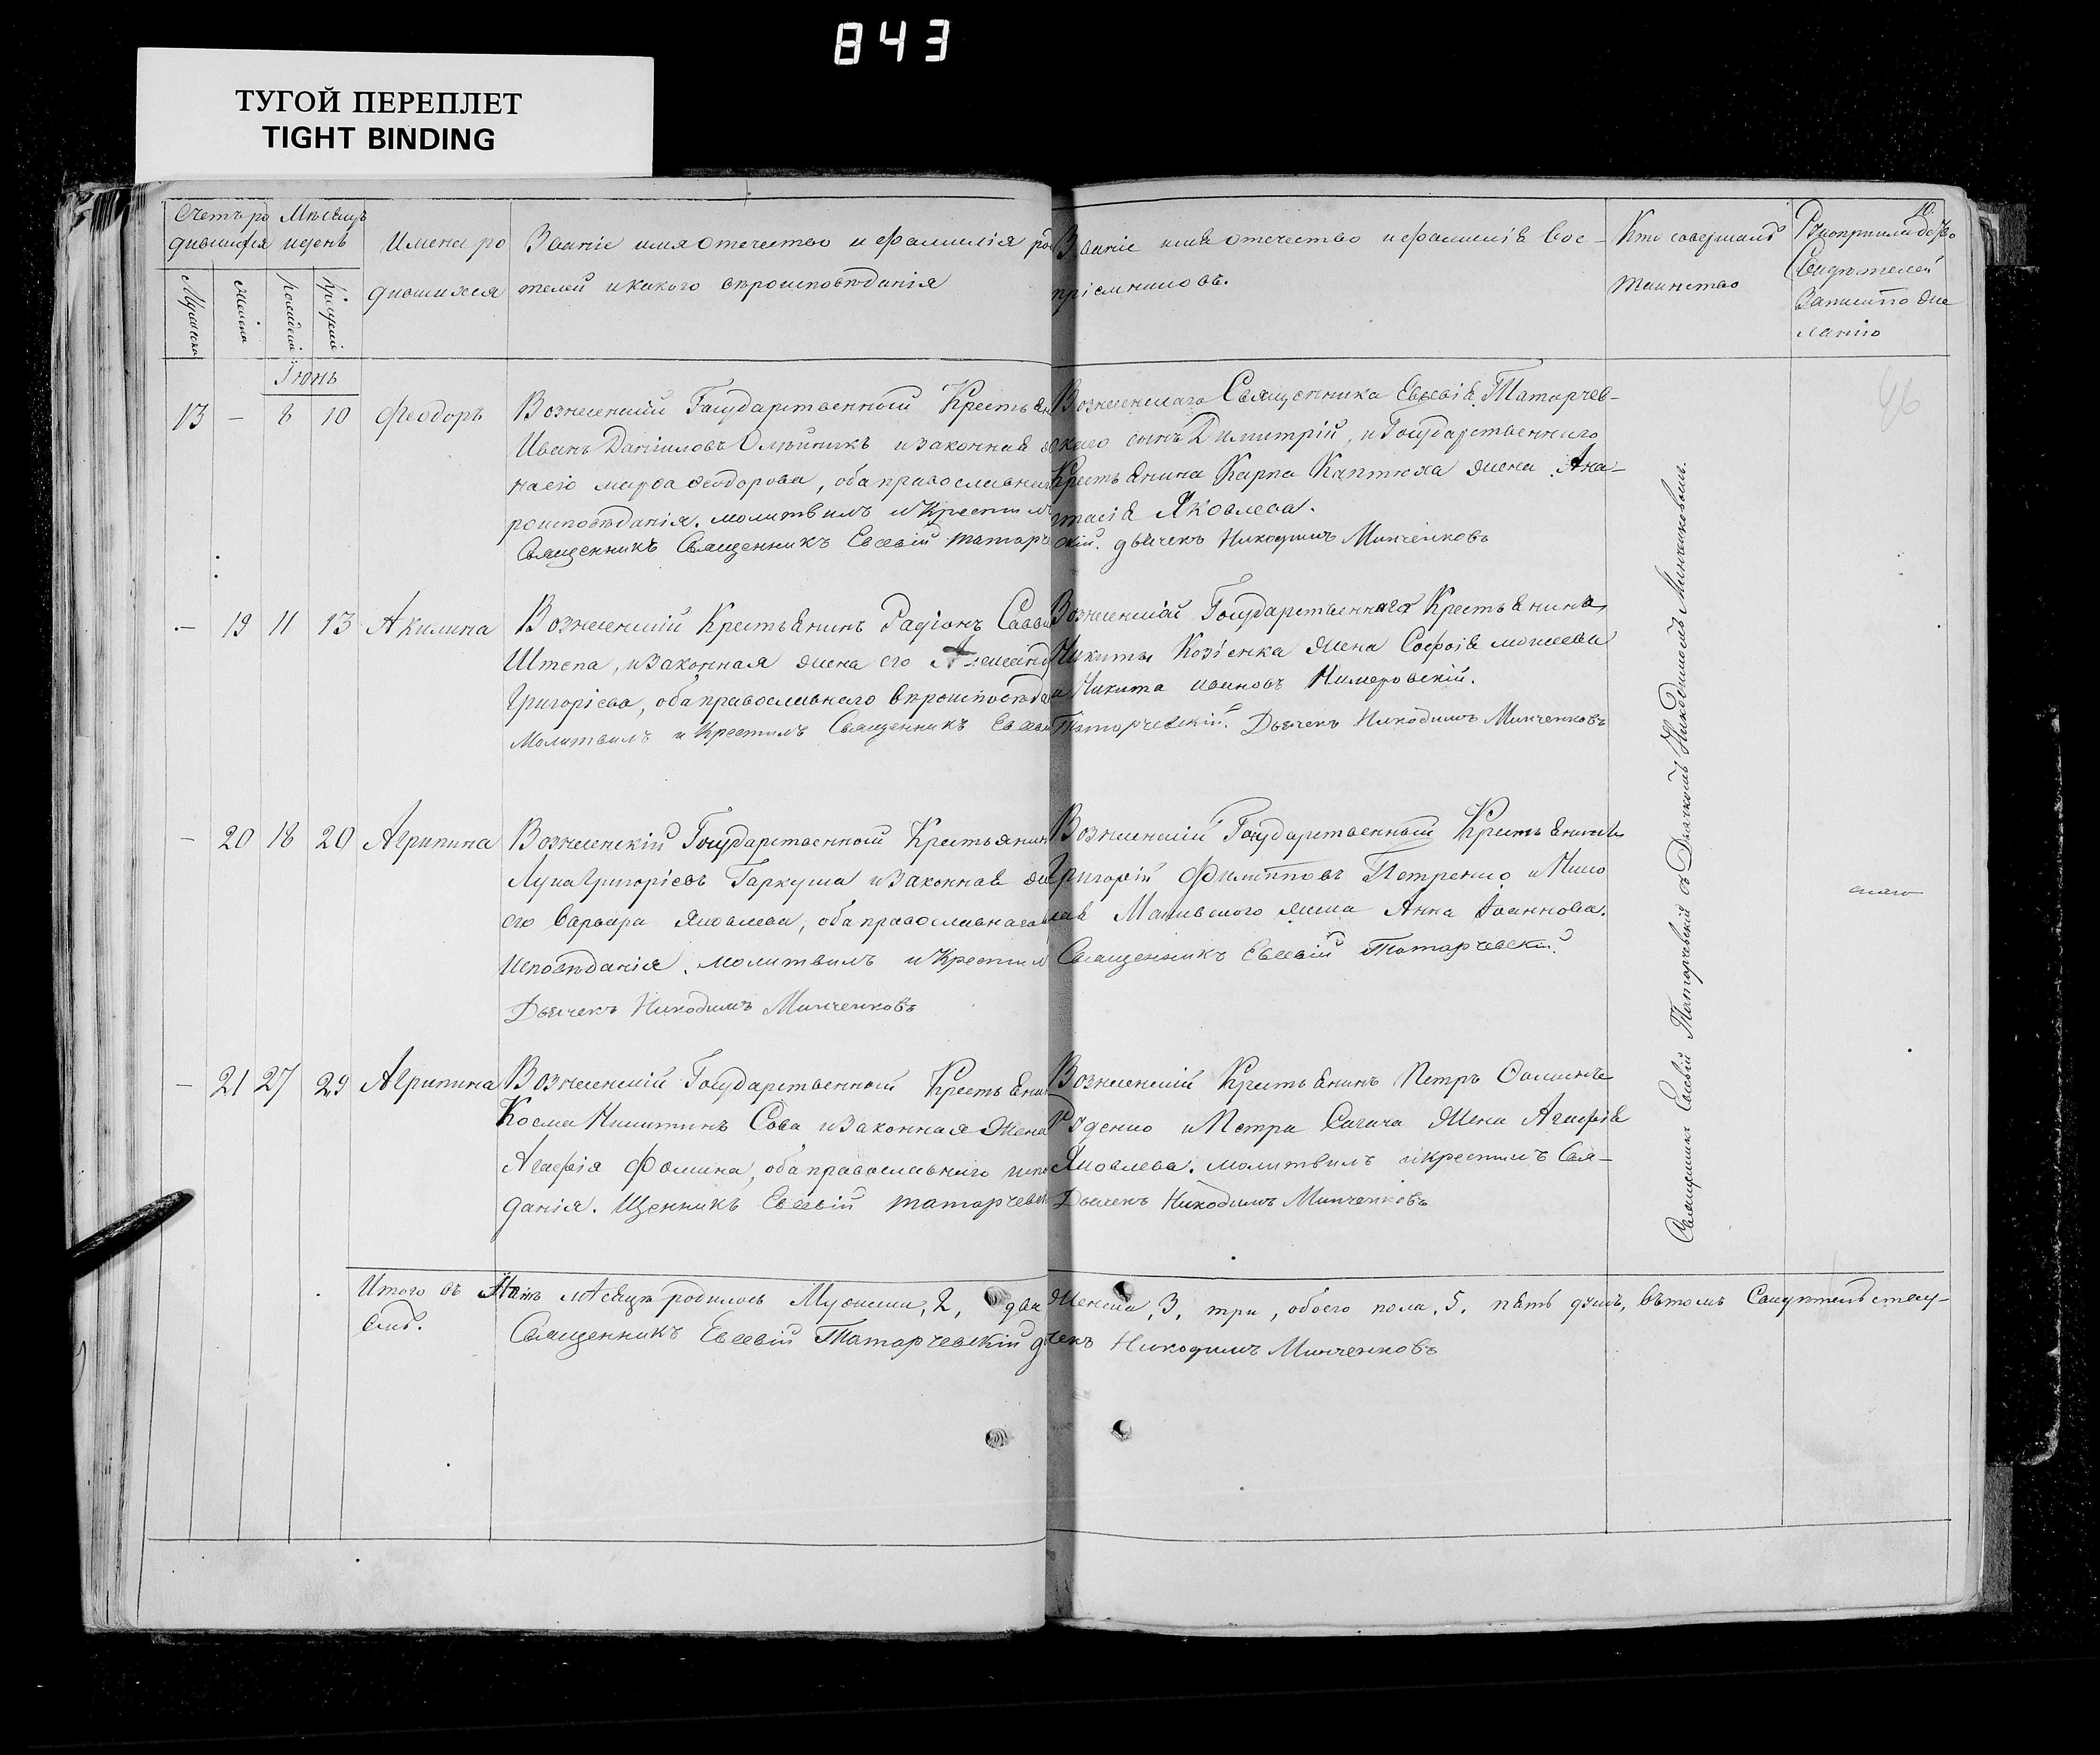 843
ТУГОЙ ПЕРЕПЛЕТ
TIGHT BINDING
Счетъ ро
дившихся
Мѣсяцъ
и день
Имена ро
дившихся
Званіе имя отечество и фамилія ро
телей и какого вѣроисповѣданія
Званіе имя отечество и фамилія вос-
пріемниковъ.
Кто совершалъ
таинство
10.
Свидѣтелей
Іюнь
13 — 8 10 Феодоръ
Вознесенскій Государственный Крестьян
Иванъ Даніиловъ Олѣйникъ и законная
на его марѳа ѳеодорова, оба православнаго
роисповѣданія. молитвилъ и Крестилъ
Священникъ Священникъ Евсевій татарче
Вознесенскаго Священника Евсевія Татарчев-
скаго сынъ Димитрій, и Государственнаго
Крестьянина Карпа Каптюха жена Ана-
стасія Яковлева.
скій. дьячекъ Никодимъ Минченковъ
— 19 11 13 Акилина
Вознесенскій Крестьянинъ Радіонъ Савви
Штепа, и законная жена его Александ
Григоріева, оба православнаго вѣроисповѣда
Молитвилъ и Крестилъ Священникъ Евсеві
Вознесенскій Государственнаго Крестьянина
Никиты Козіенка жена Софія моисеева
и Никита ивановъ Нимеровскій.
Татарчевскій. Дьячекъ Никодимъ Минченковъ
— 20 18 20 Агрипина
Вознесенскій Государственный Крестьянин
Лука Григоріевъ Гаркуша и Законная же
его Варвара Яковлева, оба православнаго
Исповѣданія. молитвилъ и Крестил
Дьячекъ Никодимъ Минченковъ
Вознесенскій Государственный Крестьянинъ
Григорій Филипповъ Петренко и Нико
лая Маливского жена Анна Іоаннова.
Священникъ Евсевій Татарчевскій
— 21 27 29 Агрипина
Вознесенскій Государственный Крестьяни
Косма Никитинъ Сова и Законная Жена
Агафія Фомина, оба православнаго испо
данія. Щенникъ Евсевій татарчевск
Вознесенскій Крестьянинъ Петръ
Руденко и Петра Сагача Жена Агафія
Яковлева. молитвилъ и крестилъ Свя-
Дьячекъ Никодимъ Минченковъ
Священникъ Евсевій Татарчевскій съ Дьячкомъ Никодимомъ Минченковымъ.
Итого въ Іюнь мѣсяцѣ родилось Мужеска, 2, два Женска, 3, три, обоего пола, 5, пять душъ, вътомъ Свидѣтельству-
емъ.
Священникъ Евсевій Татарчевскій дьячекъ Никодимъ Минченковъ